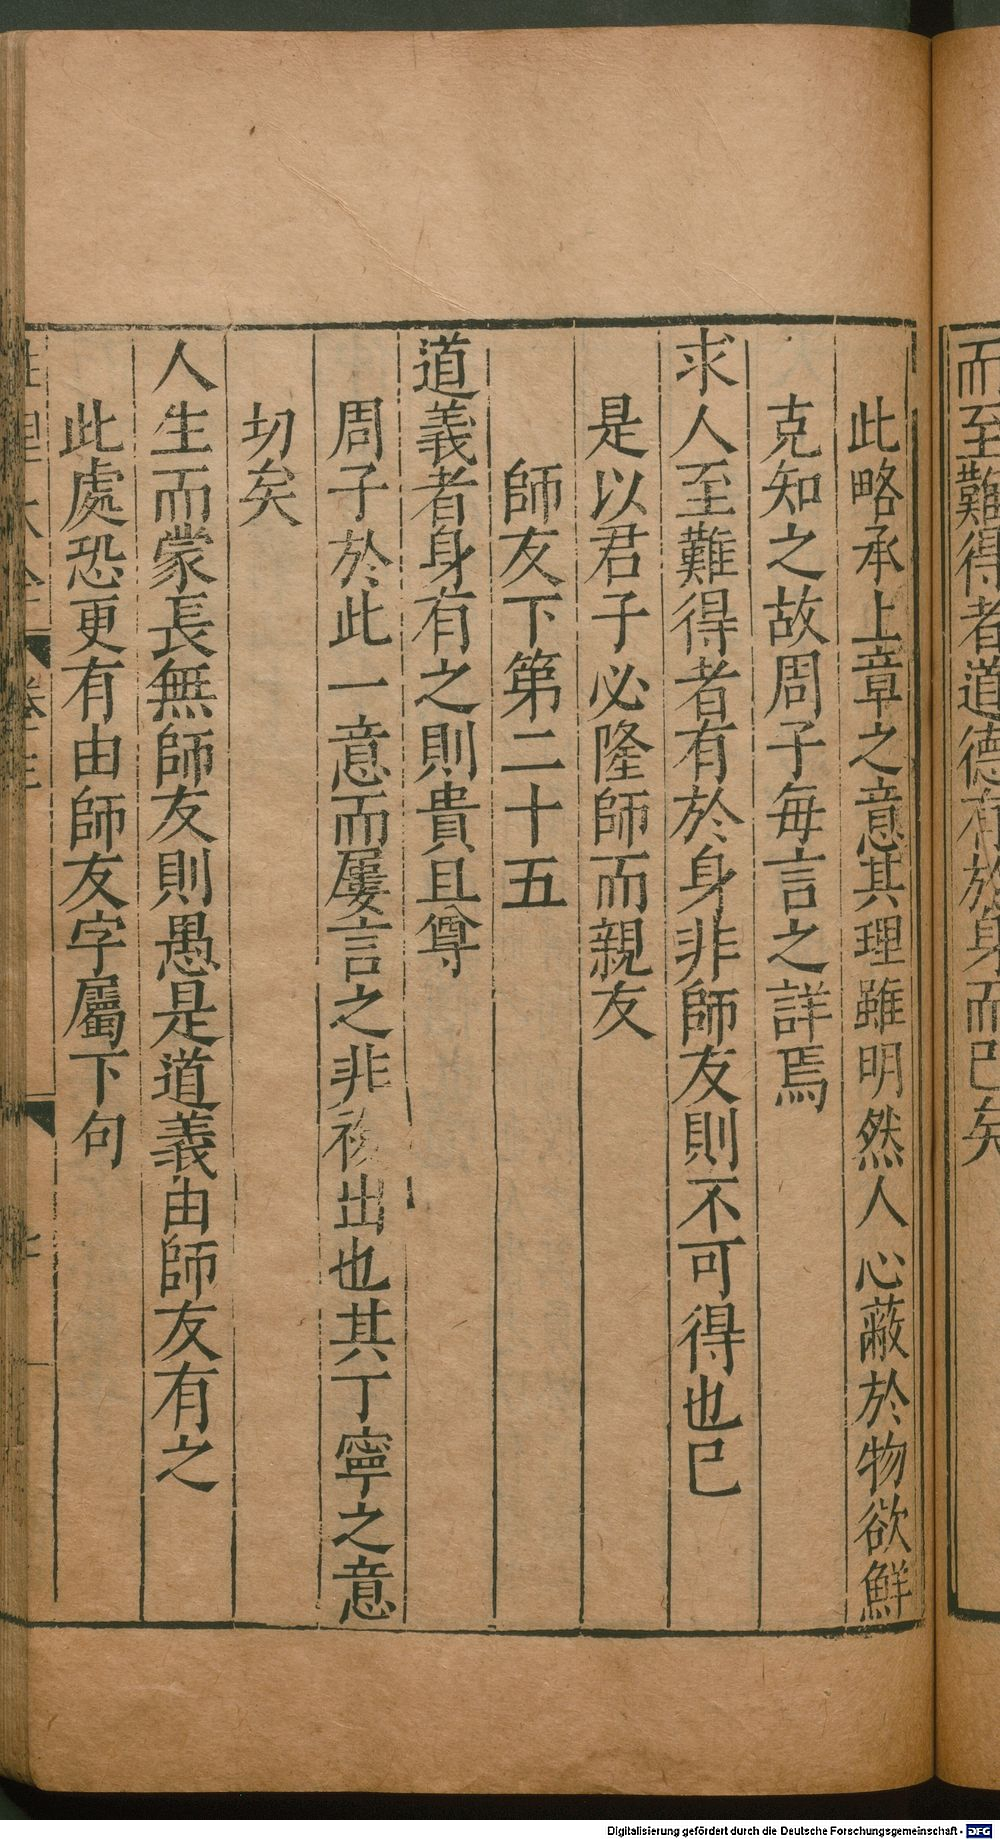 而至難得者道德有於身而已矣
此略承上章之意其理雖明然人心蔽於物欲鮮
克知之故周子每言之詳焉
求人至難得者有於身非師友則不可得也已
是以君子必隆師而親友
師友下第二十五
道義者身有之則貴且尊
周子於此一意而屢言之非複出也其丁寧之意
切矣
人生而蒙長無師友則愚是道義由師友有之
此處恐更有由師友字屬下句
Digitalisierung gefördert durch die Deutsche Forschungsgemeinschaft - DFG